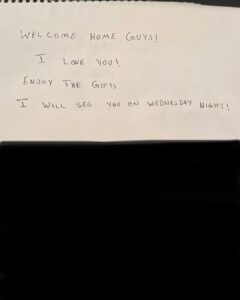 WELCOME HOME GUYS!
I LOVE YOU!
ENJOY THE GIFTS
I WILL SEE YOU ON WEDNESDAY NIGHT!